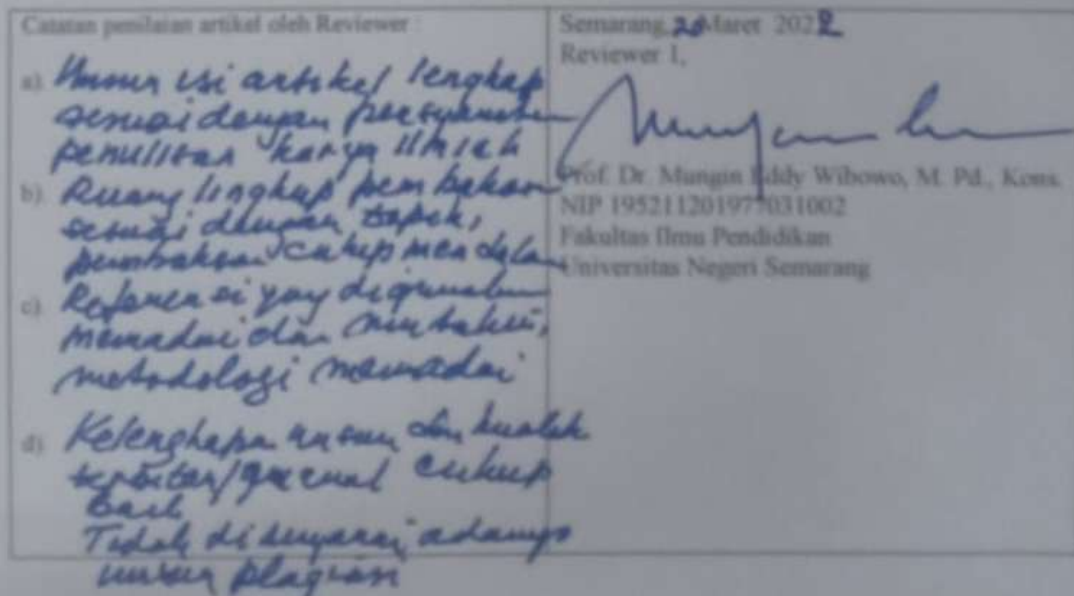 Catatan penilaian artikel oleh Reviewer :
a). Unsur isi artikel lengkap
sesuai dengan persyaratan
penulisan karya ilmiah
b). Ruang lingkup pembahasan
sesuai dengan topik,
pembahasan cukup mendalam
c). Referensi yang digunakan
memadai dan mutakhir,
metodologi memadai
d). Kelengkapan unsur dan kualitas
terbitan/jurnal cukup
baik
Tidak di adanya
unsur plagiasi
Semarang, 20 Maret 2022
Reviewer 1,
Prof. Dr. Mungin Eddy Wibowo, M. Pd., Kons.
NIP 195211201977031002
Fakultas Ilmu Pendidikan
Universitas Negeri Semarang